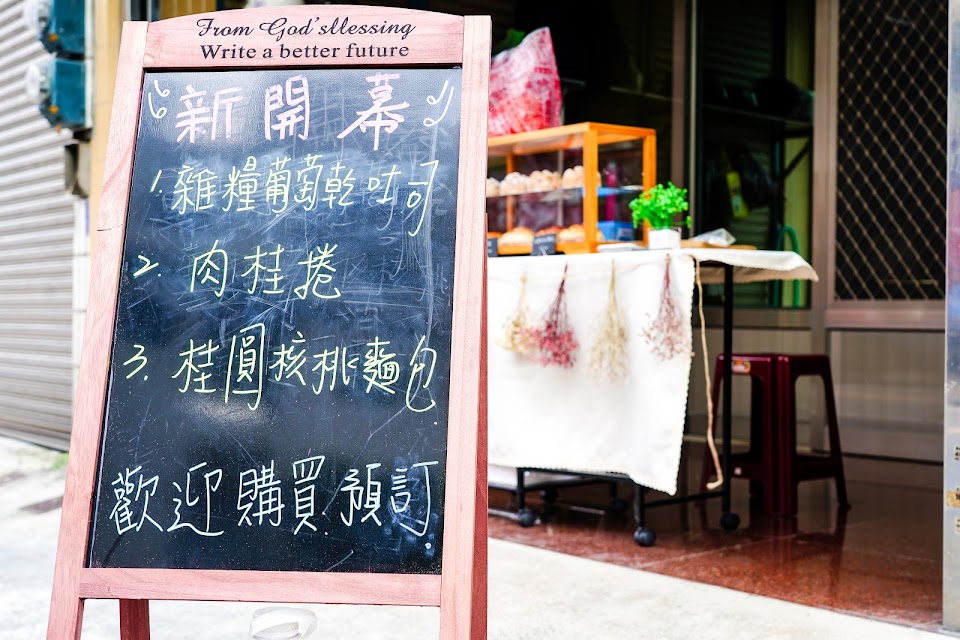 From God'sMessing
Write a better future
新開幕
1. 雜糧葡萄乾吐司
2. 肉桂捲
3. 桂圓核桃麵包
歡迎購買預訂